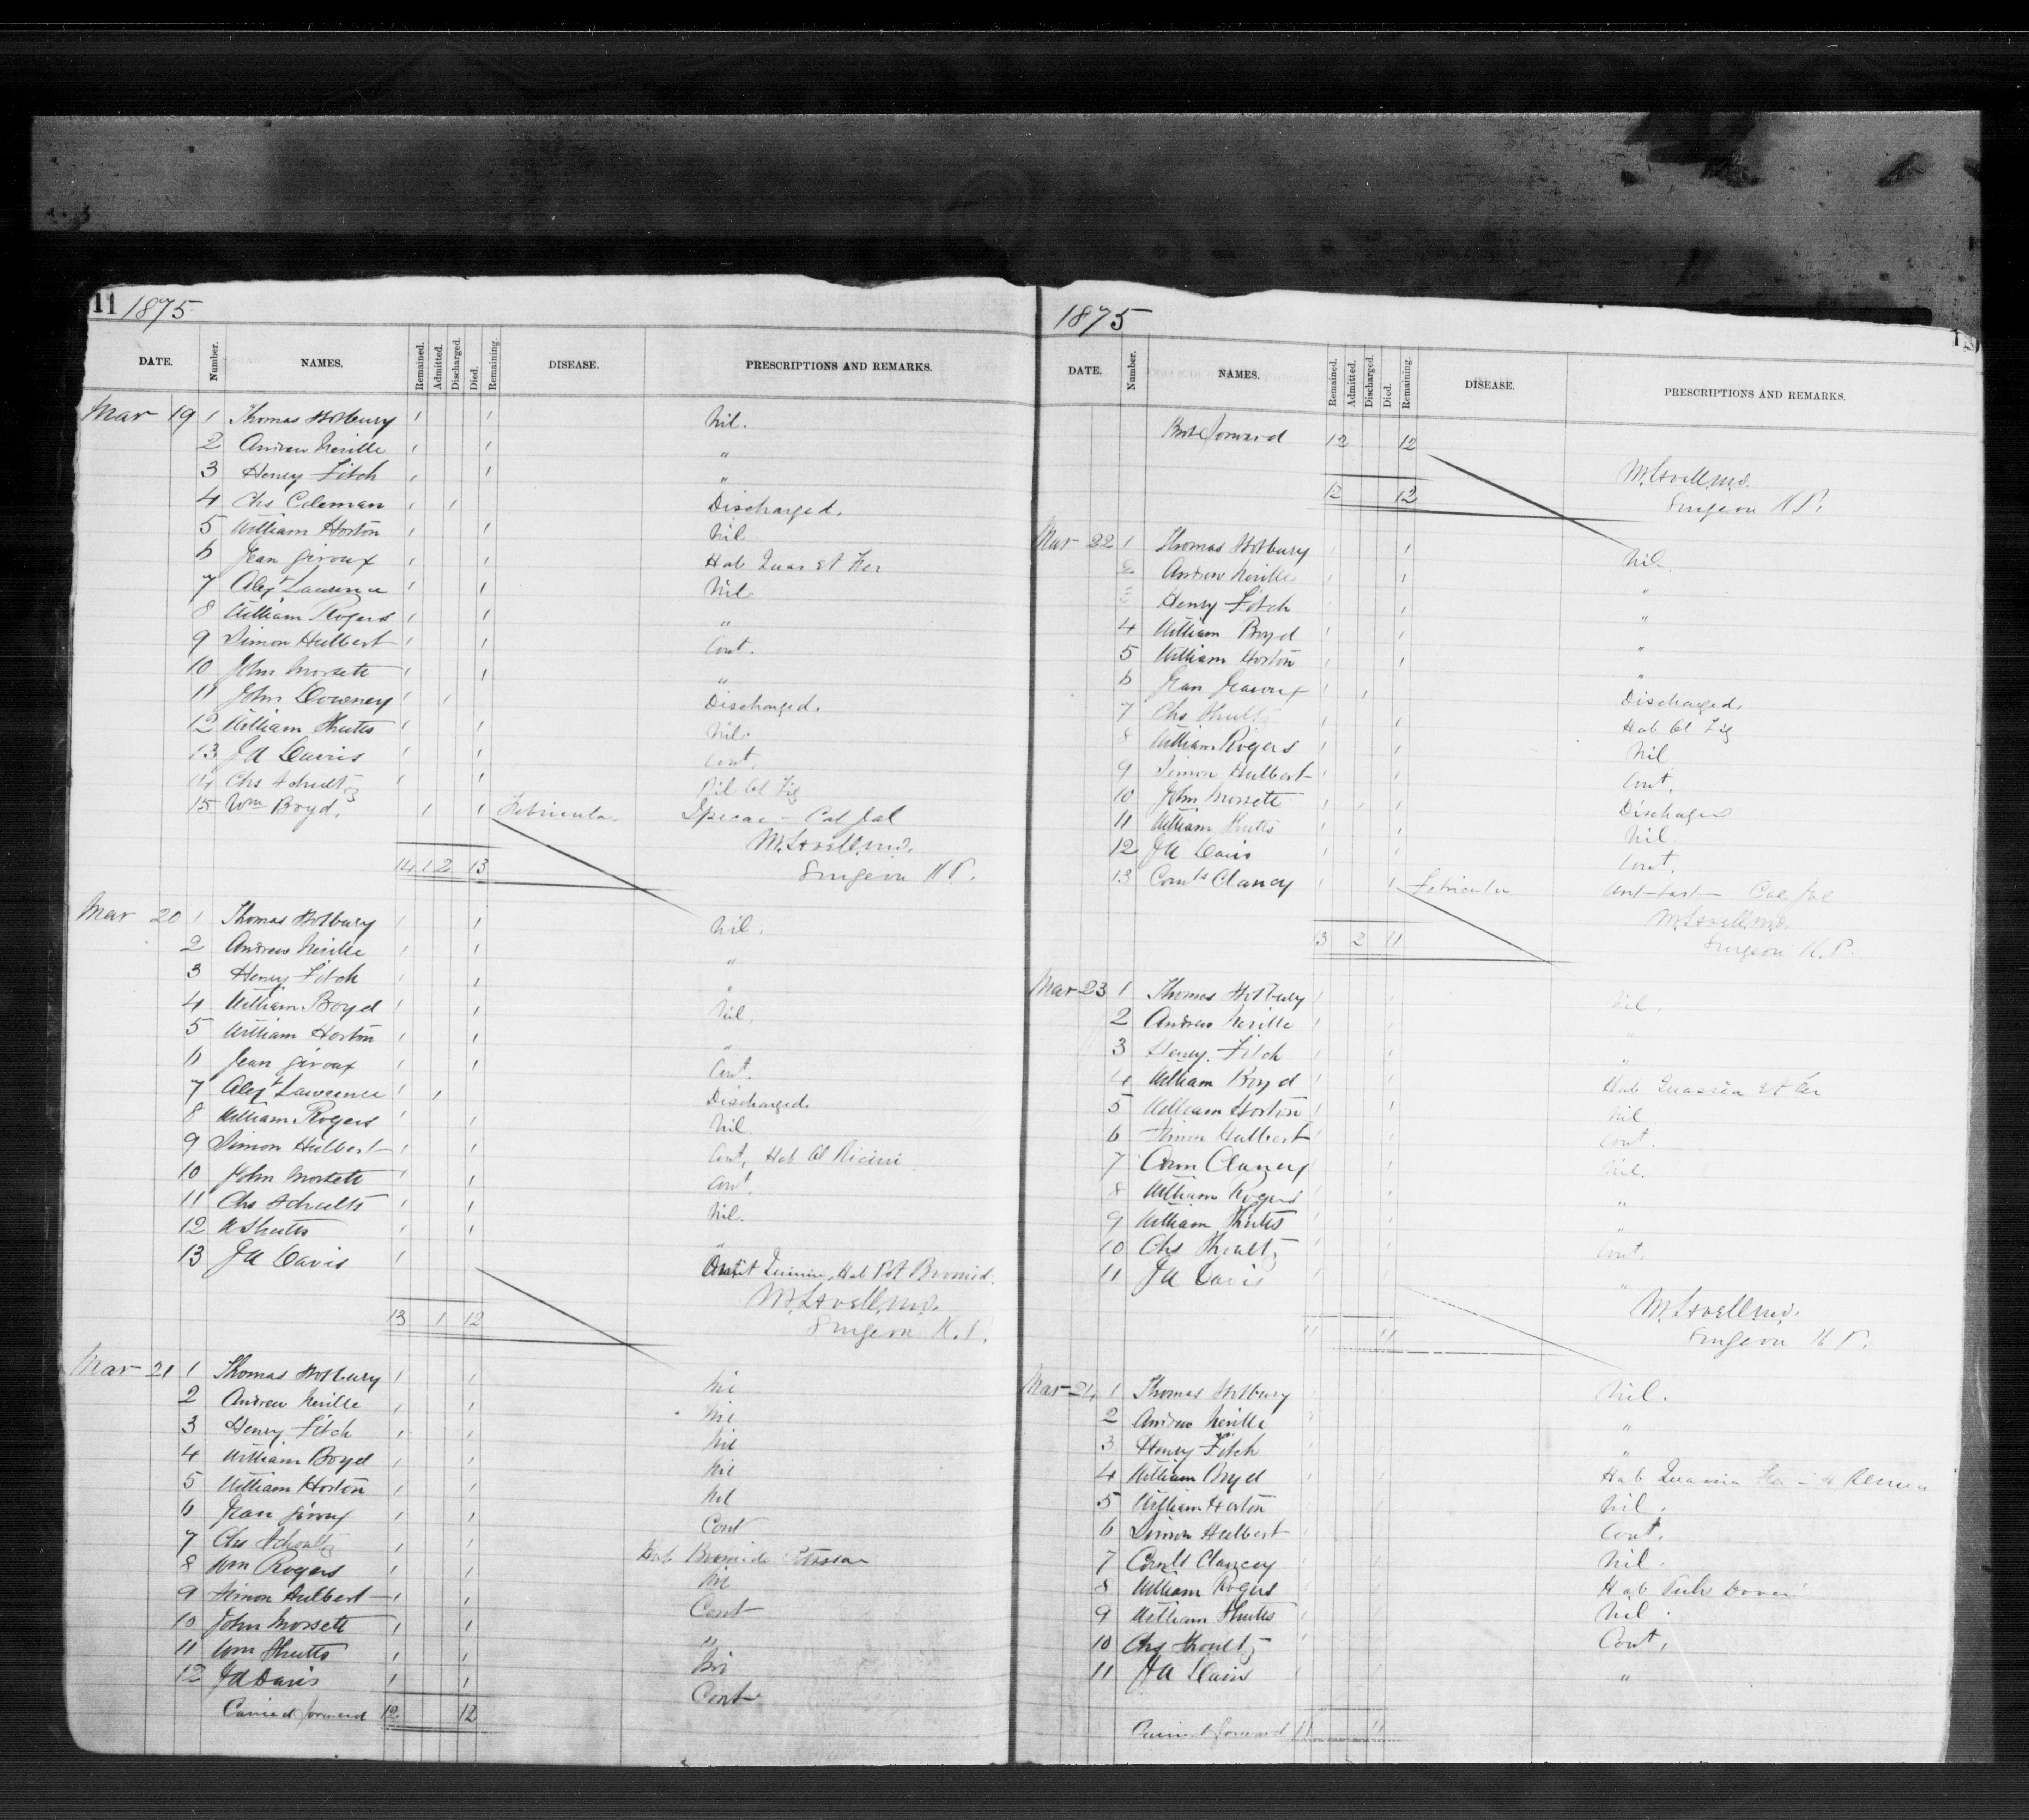 11 1875
DATE. Number. NAMES. Remained. Admitted. Discharged. Died. Remaining. DISEASE. PRESCRIPTIONS AND REMARKS.
Mar 19 1 Thomas Hotbury 1 1 Nil.
2 Andrew Neville 1 1 "
3 Henry Fitch 1 1 "
4 Chs Coleman 1 1 Discharged.
5 William Horton 1 1 Nil
6 Jean Giroux 1 1 Hab Quas et Fer
7 Alext Lawrence 1 1 Nil
8 William Rogers 1 1 "
9 Simon Hulbert 1 1 Cont.
10 John Morsette 1 1 "
11 John Downey 1 1 Discharged.
12 William Shutts 1 1 Nil.
13 J A Davis 1 1 Cont.
14 Chs Schultz 1 1 Ol Tig
15 Wm Boyd. 1 1 Febricula. Ipecac - Cal Jal
M. Lavell M.D.
14 1 2 13 Surgeon K P.
Mar 20 1 Thomas Hotbury 1 1 Nil.
2 Andrew Neville 1 1 "
3 Henry Fitch 1 1 "
4 William Boyd 1 1 Nil.
5 William Horton 1 1 "
6 Jean Giroux 1 1 Cont.
7 Alext Lawrence 1 1 Discharged
8 William Rogers 1 1 Nil.
9 Simon Hulbert 1 1 Cont, Hab Ol Ricini
10 John Morsette 1 1 Cont.
11 Chs Schults 1 1 Nil.
12 W Shutts 1 1 "
13 J A Davis 1 Quinine, Hab Pot Bromid.
M. Lavell M.D.
13 1 12 Surgeon K. P.
Mar 21 1 Thomas Hotbury 1 1 Nil
2 Andrew Neville 1 1 Nil
3 Henry Fitch 1 1 Nil
4 William Boyd 1 1 Nil
5 William Horton 1 1 Nil
6 Jean Giroux 1 1 Cont
7 Chs Schultz 1 1 Hab Bromide Potassae
8 Wm Rogers 1 1 Nil
9 Simon Hulbert 1 1 Cont
10 John Morsett 1 1 "
11 Wm Shutts 1 1 Nil
12 J A Davis 1 1 Cont
Carried forward 12 12
1875 12
DATE. Number. NAMES. Remained. Admitted. Discharged. Died. Remaining. DISEASE. PRESCRIPTIONS AND REMARKS.
Brot forward 12 12
M. Lavell M.D.
12 12 Surgeon K P.
Mar 22 1 Thomas Hotbury 1 1 Nil.
2 Andrew Neville 1 1 "
3 Henry Fitch 1 "
4 William Boyd 1 1 "
5 William Horton 1 1 "
6 Jean Giroux 1 1 Discharged.
7 Chs Shultz 1 1 Hab Ol Tig
8 William Rogers 1 1 Nil
9 Simon Hulbert 1 1 Cont.
10 John Morsette 1 1 1 Discharged
11 William Shutts 1 1 Nil
12 J A Davis 1 1 Cont.
13 Corn'ls Clancy 1 1 Febricula Ant-tart- Cal Jal
M. Lavell M.D.
13 2 11 Surgeon K. P.
Mar 23 1 Thomas Hotbury 1 1 Nil.
2 Andrew Neville 1 1 "
3 Henry Fitch 1 1 "
4 William Boyd 1 1 Hab Quassia et Fer
5 William Horton 1 1 Nil
6 Simon Hulbert 1 1 Cont.
7 Corn Clancy 1 1 Nil.
8 William Rogers 1 1 "
9 William Shutts 1 1 "
10 Chs Shoultz 1 1 Cont.
11 J A Davis 1 1 "
M. Lavell M.D.
11 11 Surgeon K P.
Mar 24 1 Thomas Hotbury 1 1 Nil.
2 Andrew Neville 1 "
3 Henry Fitch "
4 William Boyd 1 1 Hab Quassia
5 William Horton 1 1 Nil.
6 Simon Hulbert 1 1 Cont.
7 Cornls Clancey 1 1 Nil.
8 William Rogers 1 1 Hab Pulv Doveri
9 William Shutts 1 1 Nil.
10 Chs Shoultz 1 1 Cont.
11 J A Davis 1 1 "
Carried forward 11 11